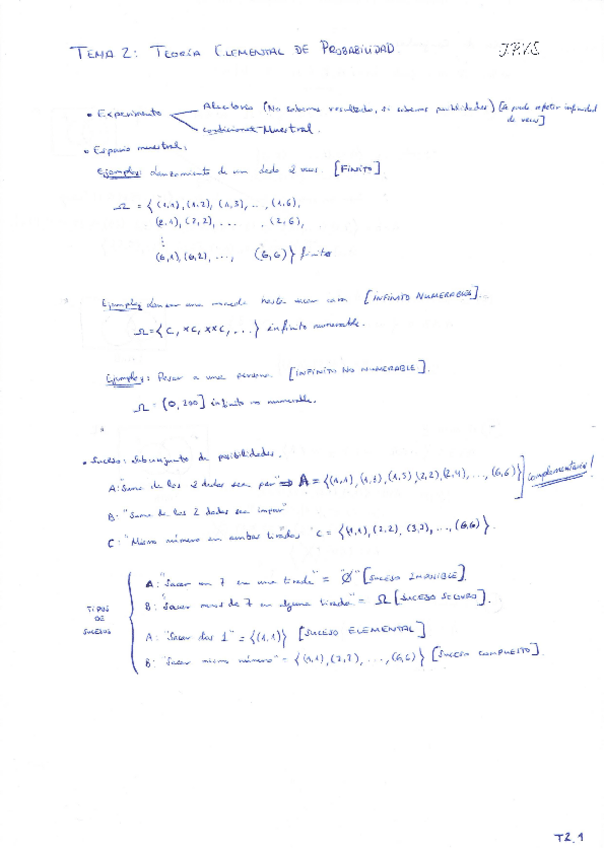 TEMA 2: TEORÍA ELEMENTAL DE PROBABILIDAD
• Experimento
Aleatorio (No sabemos resultado, si sabemos posibilidades) [se puede repetir infinidad de veces]
Muestral.
• Espacio muestral:
Ejemplo: Lanzamiento de un dado 2 veces. [FINITO]
Ω = {(1,1), (1,2), (1,3), ..., (1,6),
(2,1), (2,2), ... (2,6),
⋮
(6,1), (6,2), ..., (6,6)} finito
Ejemplo: Lanzar una moneda hasta sacar cara [INFINITO NUMERABLE].
Ω = {C, XC, XXC, ...} infinito numerable.
Ejemplo: Pesar a una persona. [INFINITO NO NUMERABLE].
Ω = (0, 200] infinito no numerable.
• Suceso: subconjunto de posibilidades.
A: "Suma de los 2 dados sea par" ⇒ A = {(1,1), (1,3), (1,5), (2,2), (2,4), ..., (6,6)} complementario!
B: "Suma de los 2 dados sea impar"
C: "Mismo número en ambas tiradas" C = {(1,1), (2,2), (3,3), ..., (6,6)}.
TIPOS DE SUCESOS
A: "Sacar un 7 en una tirada" = "Ø" [SUCESO IMPOSIBLE].
B: "Sacar menos de 7 en alguna tirada" = Ω [SUCESO SEGURO].
A: "Sacar dos 1" = {(1,1)} [SUCESO ELEMENTAL]
B: "Sacar mismo número" = {(1,1), (2,2), ..., (6,6)} [SUCESO COMPUESTO].
T2.1